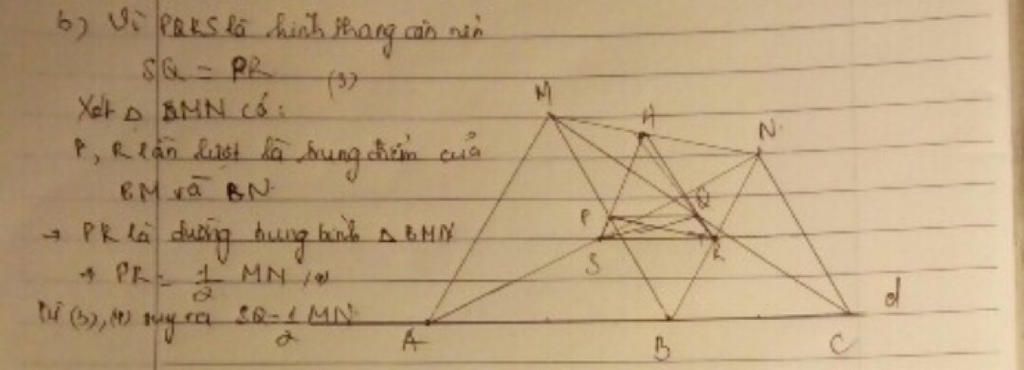 b) Vì PQRS là hình thang cân nên
SQ = PR (3)
Xét △ BMN có:
P, R lần lượt là trung điểm của
BM và BN
→ PR là đường trung bình △ BMN
→ PR = 1/2 MN (4)
Từ (3), (4) suy ra SQ = 1/2 MN
M
H
N
P
Q
S
R
d
A
B
C